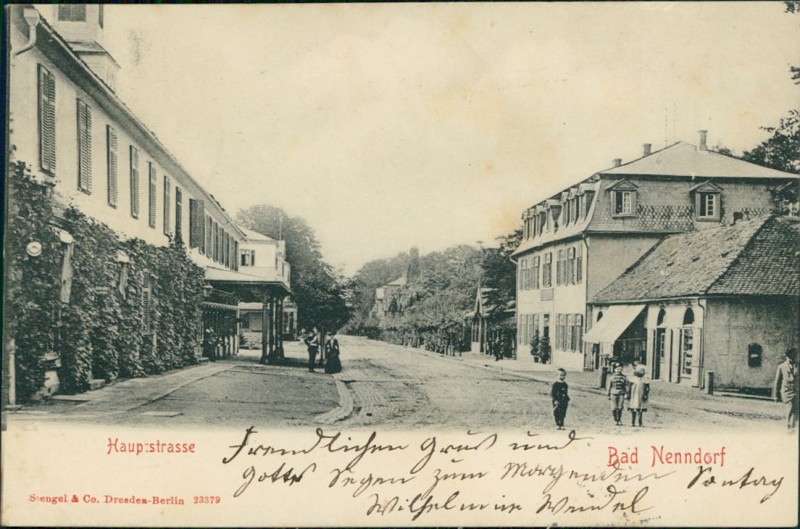 Hauptstrasse
Bad Nenndorf
Freundlichen Gruß und
Gottes Segen zum morgenden Sontag
Wilhelmine Wendel
Stengel & Co. Dresden-Berlin 23379